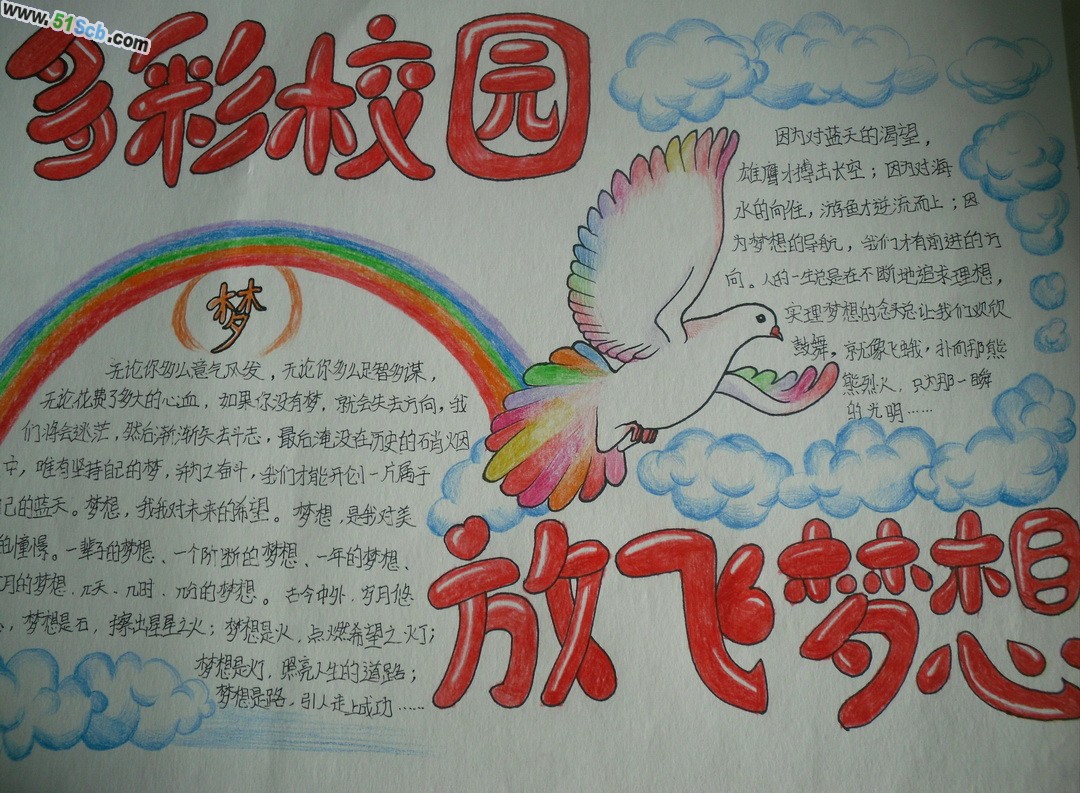 www.51Scb.com
多彩校园
因为对蓝天的渴望，
雄鹰才搏击太空；因为对海
水的向往，游鱼才逆流而上；因
为梦想的导航，我们才有前进的方
向。人的一生总是在不断地追求理想，
实理梦想的念头总让我们欢欣
鼓舞。就像飞蛾，扑向那熊
熊烈火，只为那一瞬
的光明……
梦
无论你多么意气风发，无论你多么足智多谋，
无论花费了多大的心血，如果你没有梦，就会失去方向，我
们将会迷茫，然后渐渐失去斗志，最后淹没在历史的硝烟
中，唯有坚持自己的梦，并为之奋斗，我们才能开创一片属于
己的蓝天。梦想，我我对未来的希望。梦想，是我对美
的憧憬。一辈子的梦想、一个阶断的梦想、一年的梦想、
月的梦想、几天、几时、几分的梦想。古今中外，岁月悠
，梦想是石，擦出星星之火；梦想是火，点燃希望之灯；
梦想是灯，照亮人生的道路；
梦想是路，引人走上成功……
放飞梦想